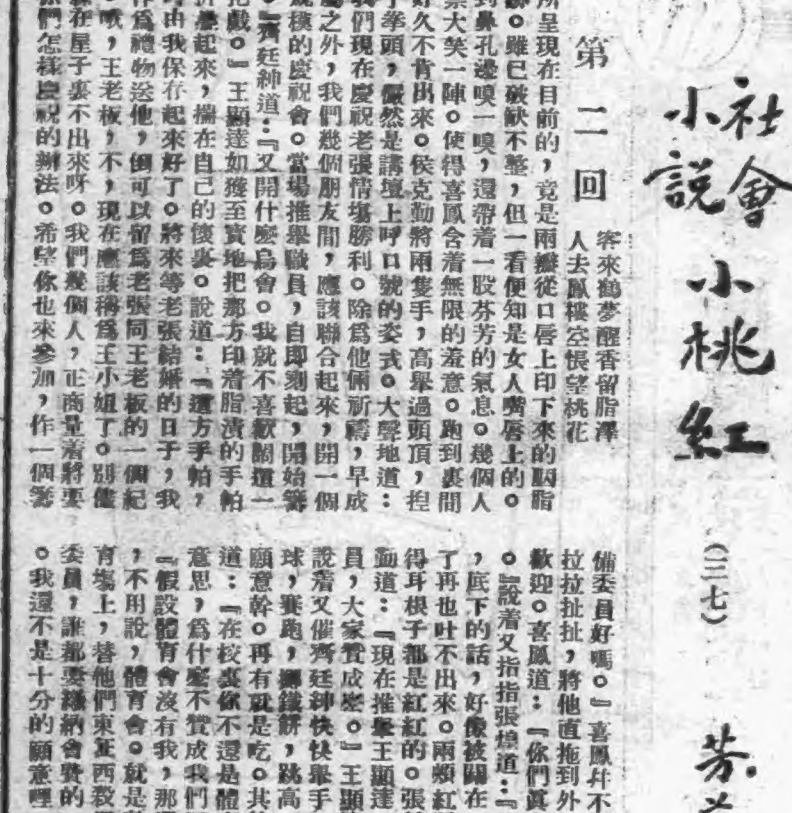 社會
小說
小桃紅
(三七)
芳
第二回
客來鶴夢醒香留脂澤
人去鳳樓空悵望桃花
所呈現在目前的，竟是兩瓣從口唇上印下來的胭脂
。雖已破缺不整，但一看便知是女人嘴唇上的。
到鼻孔邊嗅一嗅，還帶着一股芬芳的氣息。幾個人
大笑一陣。使得喜鳳含着無限的羞意。跑到裏間
好久不肯出來。侯克勤將兩隻手，高舉過頭頂，捏
拳頭，儼然是講壇上呼口號的姿式。大聲地道：
我們現在慶祝老張情塲勝利。除爲他倆祈禱，早成
之外，我們幾個朋友間，應該聯合起來，開一個
規模的慶祝會。當場推舉職員，自即刻起，開始籌
。』齊廷紳道：『又開什麼鳥會。我就不喜歡鬧這一
把戲。』王顯達如獲至寶地把那方印着脂漬的手帕
起來，揣在自己的懷裏。說道：『這方手帕，
由我保存起來好了。將來等老張結婚的日子，我
作爲禮物送他，倒可以留爲老張同王老板的一個紀
哦，王老板，不，現在應該稱爲王小姐了。別儘
在屋子裏不出來呀。我們幾個人，正商量着將要
們怎樣慶祝的辦法。希望你也來參加，作一個籌
備委員好嗎。』喜鳳幷不
拉拉扯扯，將他直拖到外
歡迎。喜鳳道：『你們眞
。』說着又指指張煌道：『
，底下的話，好像被關在
了再也吐不出來。兩頰紅
得耳根子都是紅紅的。張
勤道：『現在推舉王顯達
員，大家贊成麼。』王顯
說着又催齊廷紳快快舉手
球，賽跑，擲鐵餅，跳高
願意幹。再有就是吃。其
道：『在校裏你不還是體
意思，爲什麼不贊成我們
『假設體育會沒有我，那
，不用說，體育會。就是
育塲上，替他們東征西殺
委員，誰都要繳納會費的
。我還不是十分的願意哩